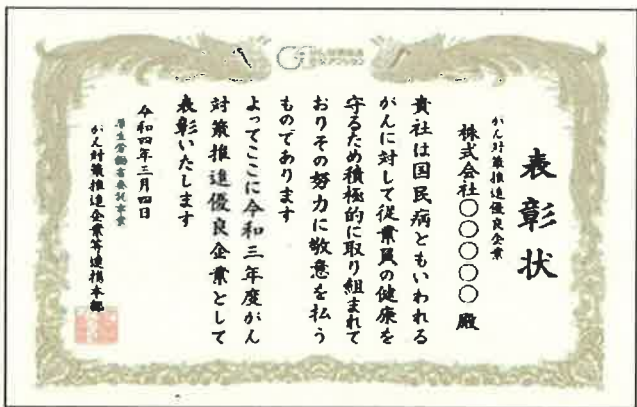 がん対策推進
企業アクション
表彰状
がん対策推進優良企業
株式会社〇〇〇〇〇殿
貴社は国民病ともいわれる
がんに対して従業員の健康を
守るため積極的に取り組まれて
おりその努力に敬意を払う
ものであります
よってここに令和三年度がん
対策推進優良企業として
表彰いたします
令和四年三月四日
厚生労働省委託事業
がん対策推進企業等連携本部